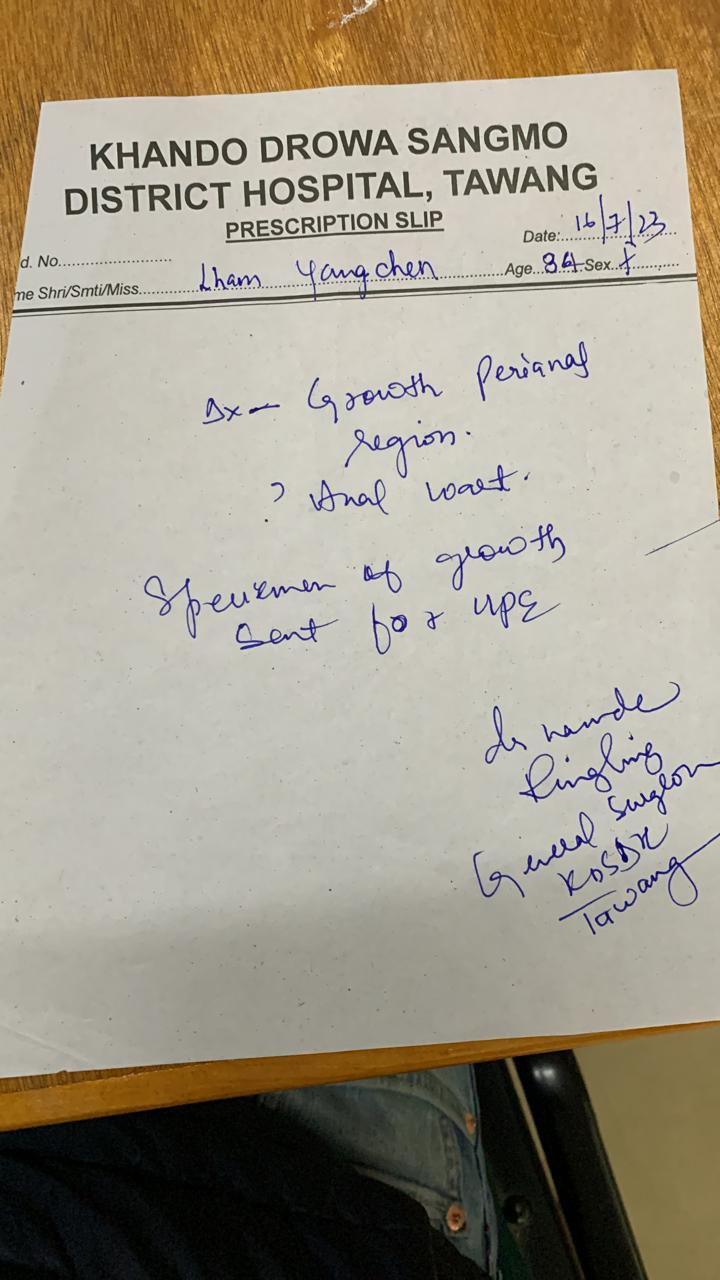 KHANDO DROWA SANGMO
DISTRICT HOSPITAL, TAWANG
PRESCRIPTION SLIP
d. No.......................... Date:.... 16/7/23
me Shri/Smti/Miss..... Lham Yangchen .....Age... Sex...
Dx – Growth Perianal
region.
? Anal wart.
Specimen of growth
sent for HPE
General Surgeon
KDSDH
Tawang